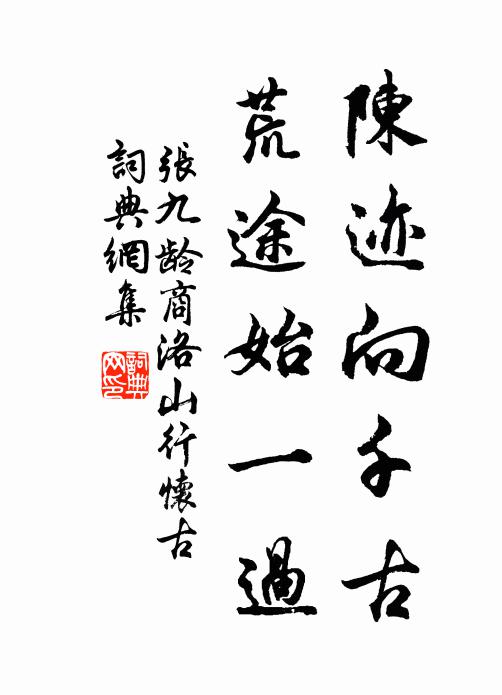 陳迹向千古
荒途始一過
張九龄商洛山行懷古
詞典網集
詞典
网印